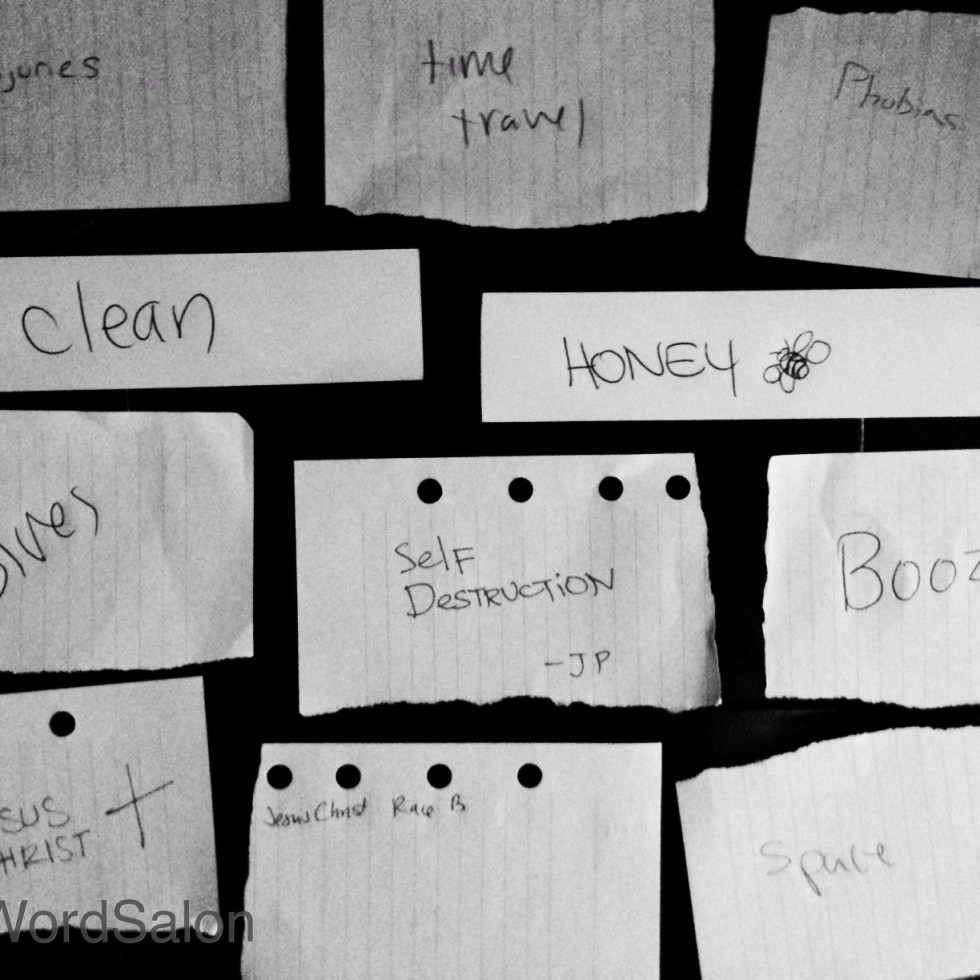 time
travel
Phobias
clean
HONEY
Self
DESTRUCTION
-JP
Booz
SUS
HRIST
Jesus Christ Race B
Space
WordSalon